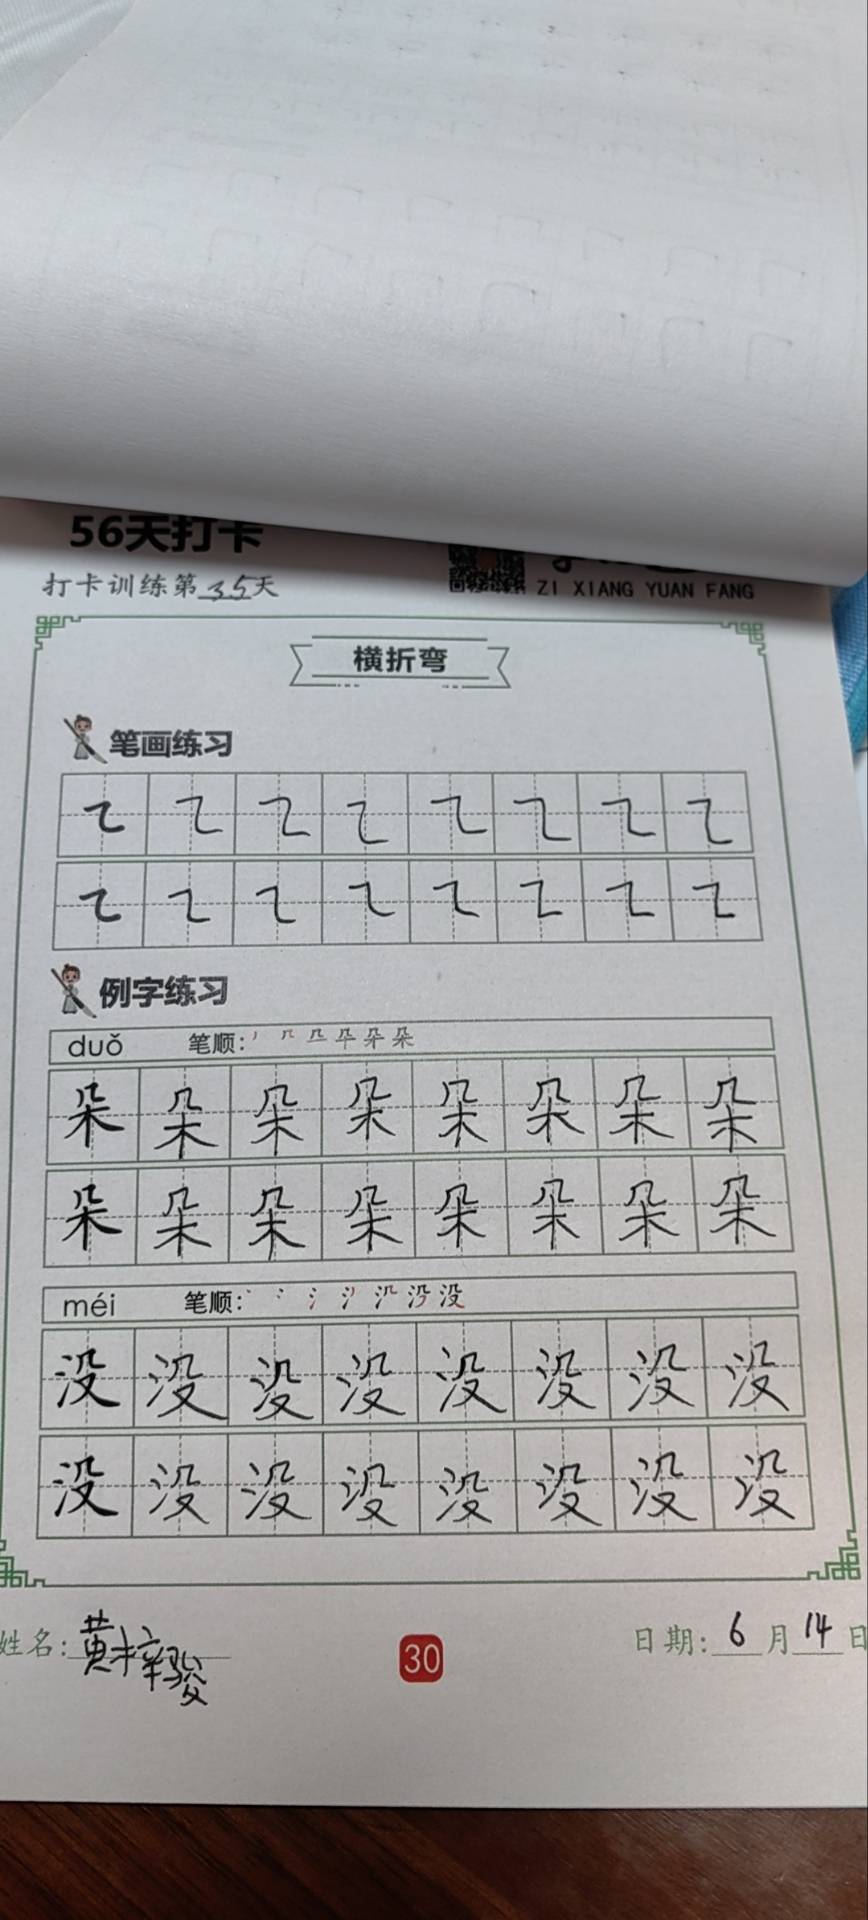 56天打卡
打卡训练第35天
ZI XIANG YUAN FANG
横折弯
笔画练习
㇍ ㇍ ㇍ ㇍ ㇍ ㇍ ㇍ ㇍
㇍ ㇍ ㇍ ㇍ ㇍ ㇍ ㇍ ㇍
例字练习
duǒ 笔顺:
朵 朵 朵 朵 朵 朵 朵 朵
朵 朵 朵 朵 朵 朵 朵 朵
méi 笔顺:
没 没 没 没 没 没 没 没
没 没 没 没 没 没 没 没
姓名:黄梓骏
30
日期:6月14日